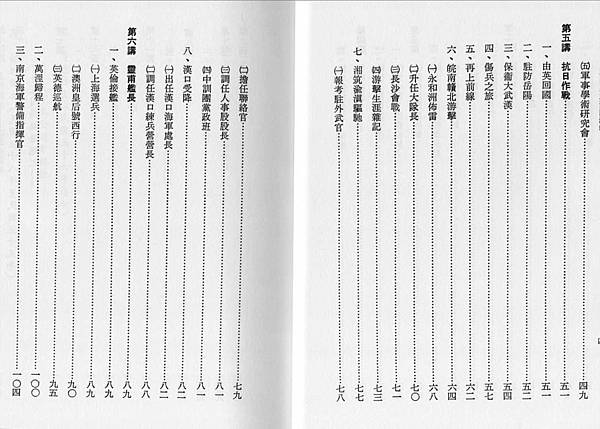 ㈤軍事學術研究會……四九
第五講 抗日作戰……五一
一、由英回國……五一
二、駐防岳陽……五二
三、保衛大武漢……五四
四、傷兵之旅……五七
五、再上前線……六二
六、皖南贛北游擊……六四
㈠永和洲佈雷……六八
㈡升任大隊長……七〇
㈢長沙會戰……七一
㈣游擊生涯雜記……七三
七、湘筑渝滇驅馳……七七
㈠報考駐外武官……七八
㈡擔任聯絡官……七九
㈢調任人事股股長……八一
㈣中訓團黨政班……八一
八、漢口受降……八二
㈠出任漢口海軍處長……八二
㈡調任漢口練兵營營長……八八
第六講 靈甫艦長……八九
一、英倫接艦……八九
㈠上海選兵……八九
㈡澳洲皇后號西行……九〇
㈢英德巡航……九五
二、萬浬歸程……一〇〇
三、南京海軍警備指揮官……一〇四